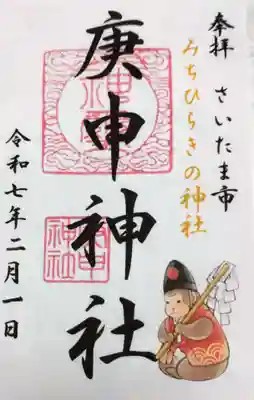 奉拝 さいたま市
みちひらきの神社
庚申神社
令和七年二月一日